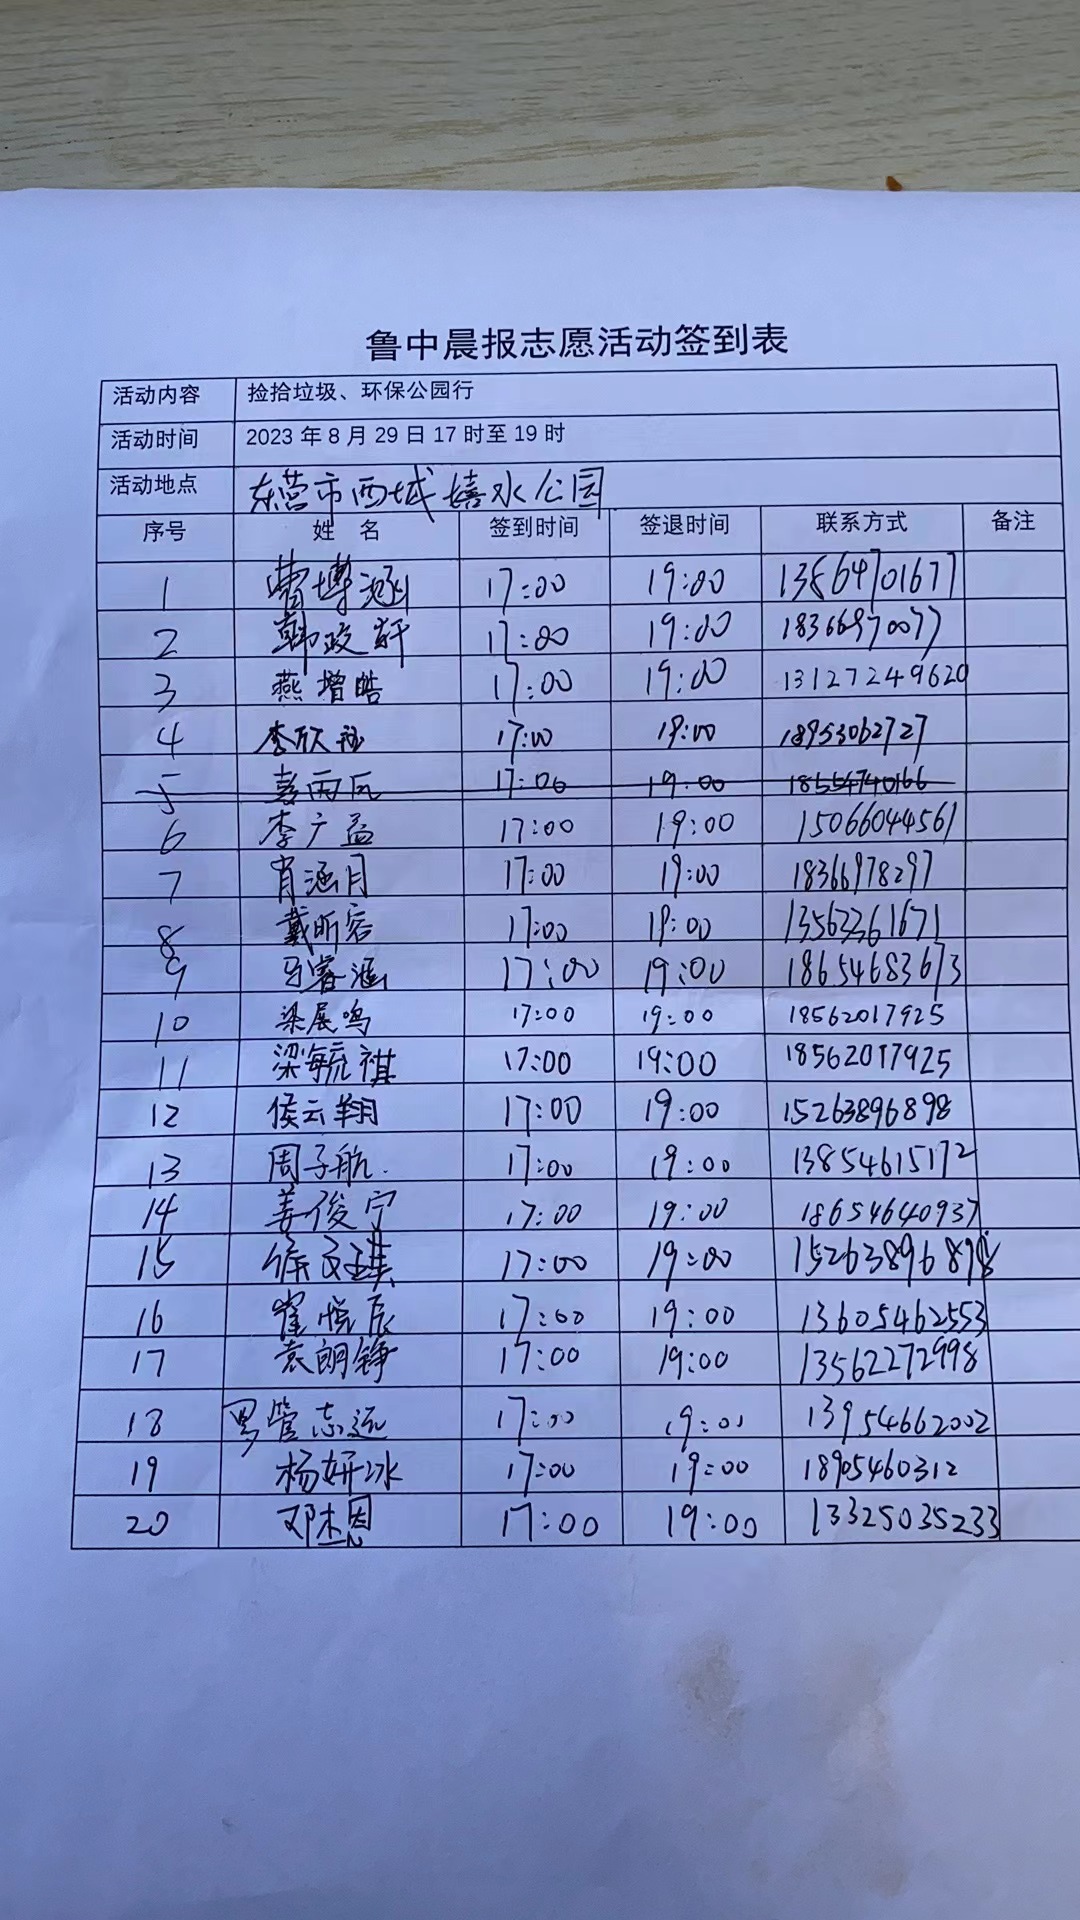 鲁中晨报志愿活动签到表
活动内容 捡拾垃圾、环保公园行
活动时间 2023 年 8 月 29 日 17 时至 19 时
活动地点 东营市西城嬉水公园
序号 姓 名 签到时间 签退时间 联系方式 备注
1 曹博涵 17:00 19:00 13864701677
2 韩政轩 17:00 19:00 18366970077
3 燕增皓 17:00 19:00 13127249620
4 李欣 17:00 19:00 18953062727
5 17:00 19:00 18554740166
6 李广益 17:00 19:00 15066044561
7 肖涵月 17:00 19:00 18366978297
8 戴昕容 17:00 19:00 13563361671
9 马睿涵 17:00 19:00 18654683673
10 梁展鸣 17:00 19:00 18562017925
11 梁毓祺 17:00 19:00 18562017925
12 侯云翔 17:00 19:00 15263896898
13 周子航. 17:00 19:00 13854615172
14 姜俊宁 17:00 19:00 18654640937
15 徐文琪 17:00 19:00 15263896898
16 崔悦辰 17:00 19:00 13605462553
17 袁朗铮 17:00 19:00 13562272998
18 男管志远 17:00 19:00 13954662002
19 杨妍冰 17:00 19:00 18905460312
20 邓杰恩 17:00 19:00 13325035233